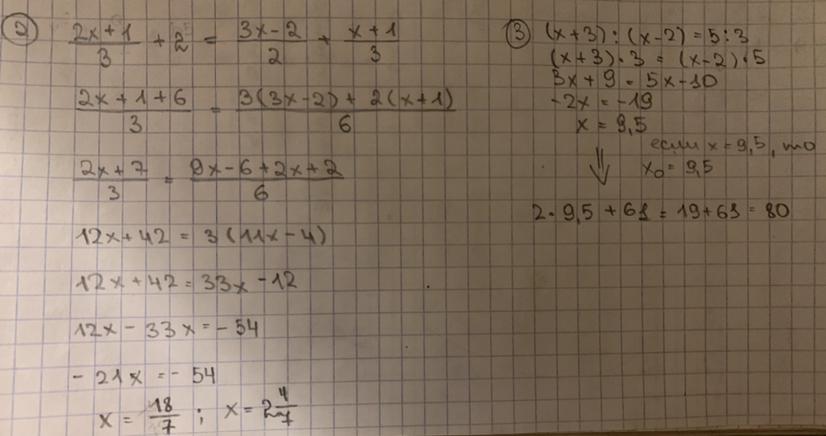 2) (2x+1)/3 + 2 = (3x-2)/2 + (x+1)/3
(2x+1+6)/3 = (3(3x-2)+2(x+1))/6
(2x+7)/3 = (9x-6+2x+2)/6
12x+42 = 3(11x-4)
12x+42 = 33x-12
12x-33x = -54
-21x = -54
x = 18/7 ; x = 2 4/7
3) (x+3):(x-2)=5:3
(x+3)·3 = (x-2)·5
3x+9 = 5x-10
-2x = -19
x = 9,5
если x=9,5, то
x₀=9,5
⇓
2·9,5+61 = 19+61 = 80